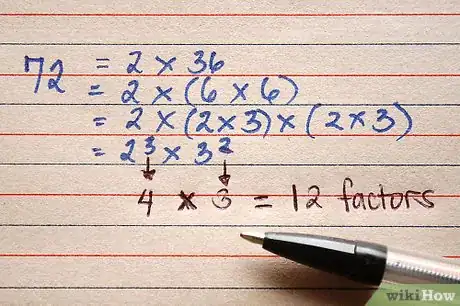 72 = 2 × 36
= 2 × (6 × 6)
= 2 × (2 × 3) × (2 × 3)
= 2³ × 3²
4 × 3 = 12 factors
wikiHow